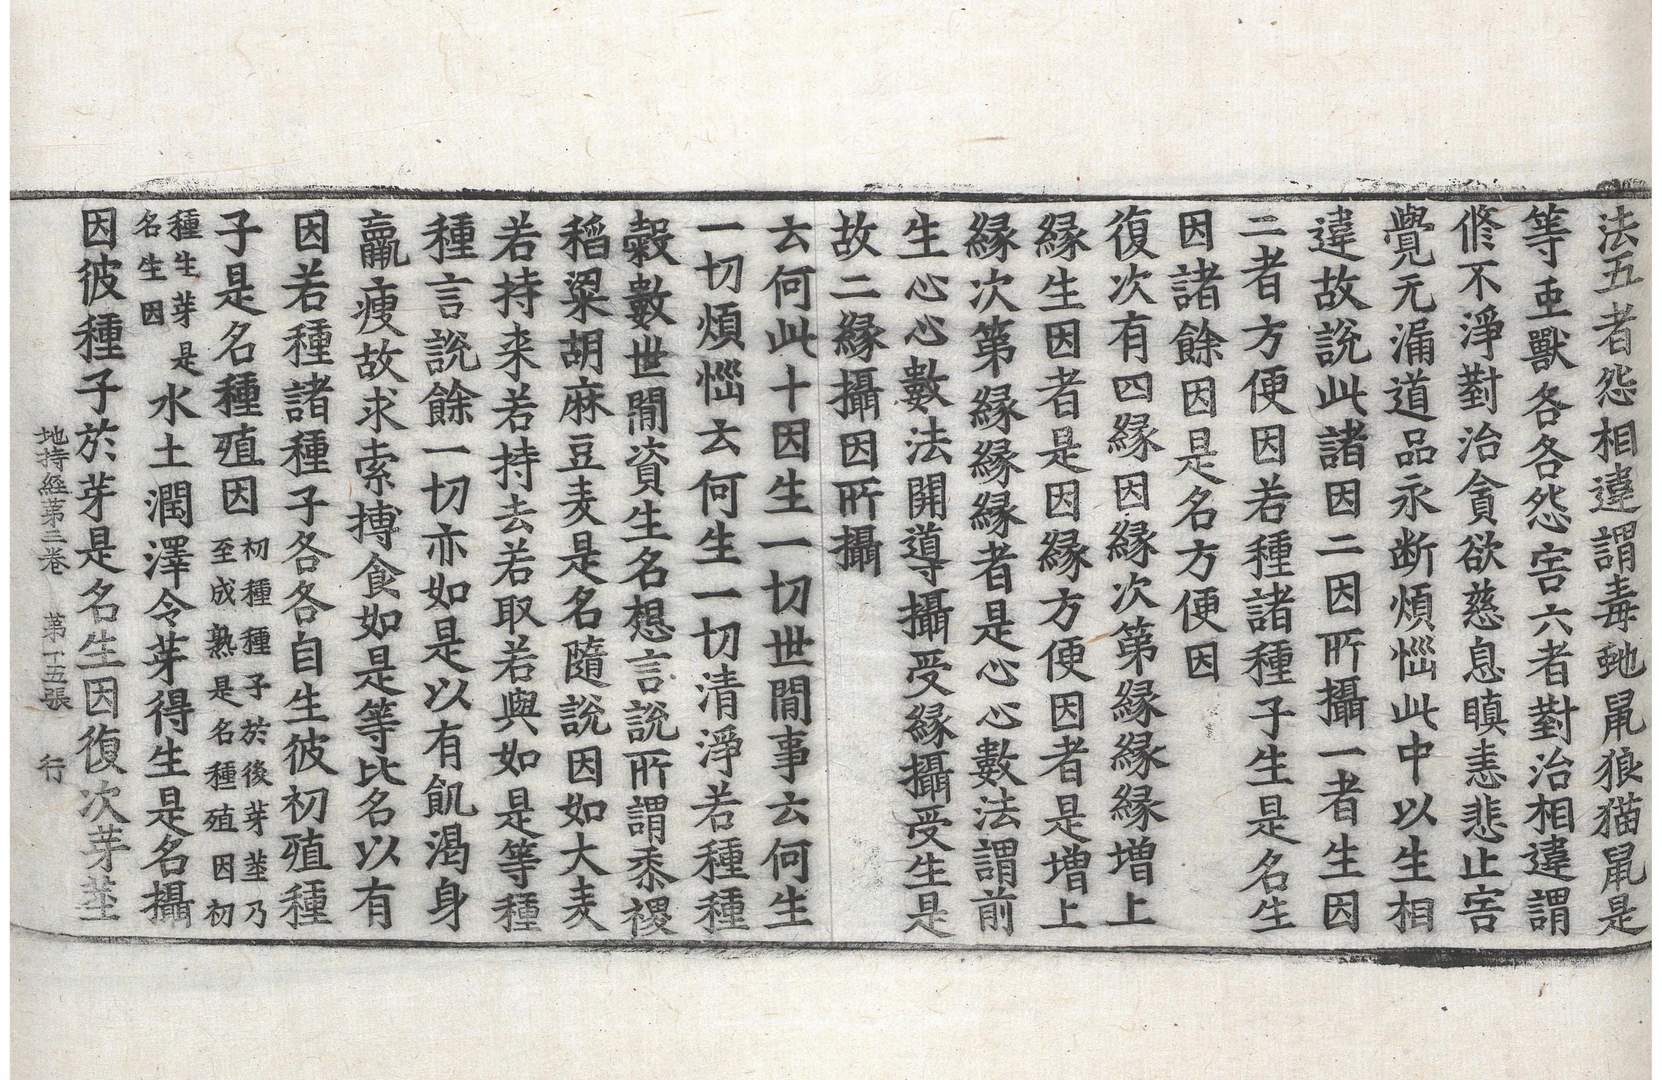 法五者怨相違謂毒虵鼠狼猫鼠是
等䖝獸各各怨害六者對治相違謂
修不淨對治貪欲慈息瞋恚悲止害
覺元漏道品永断煩惱此中以生相
違故說此諸因二因所攝一者生因
二者方便因若種諸種子生是名生
因諸餘因是名方便因
復次有四緣因緣次第緣緣緣增上
緣生因者是因緣方便因者是增上
緣次第緣緣緣者是心心數法謂前
生心心數法開導攝受緣攝受生是
故二緣攝因所攝
云何此十因生一切世間事云何生
一切煩惱云何生一切清淨若種種
穀數世間資生名想言說所謂黍稷
稻粱胡麻豆麦是名隨說因如大麦
若持来若持去若取若與如是等種
種言說餘一切亦如是以有飢渴身
羸瘦故求索摶食如是等比名以有
因若種諸種子各各自生彼初殖種
子是名種殖因初種種子於後芽莖乃至成熟是名種殖因初
種生芽是名生因水土潤澤令芽得生是名攝
因彼種子於芽是名生因復次芽莖
地持經第三卷 第十五張 行